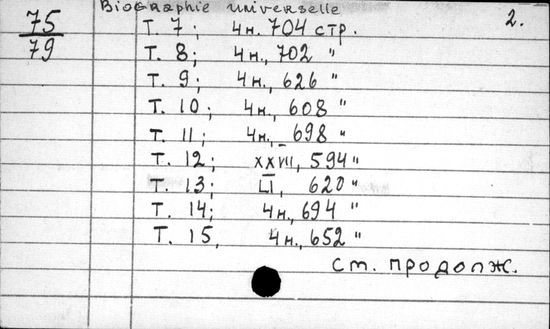 75
79
Biographie universelle
2.
Т. 7; 4н. 704 стр.
Т. 8; 4н., 702 "
Т. 9; 4н., 626 "
Т. 10; 4н., 608 "
Т. 11; 4н., 698 "
Т. 12; XXVIII, 594 "
Т. 13; LI, 620 "
Т. 14; 4н., 694 "
Т. 15, 4н., 652 "
см. продолж.